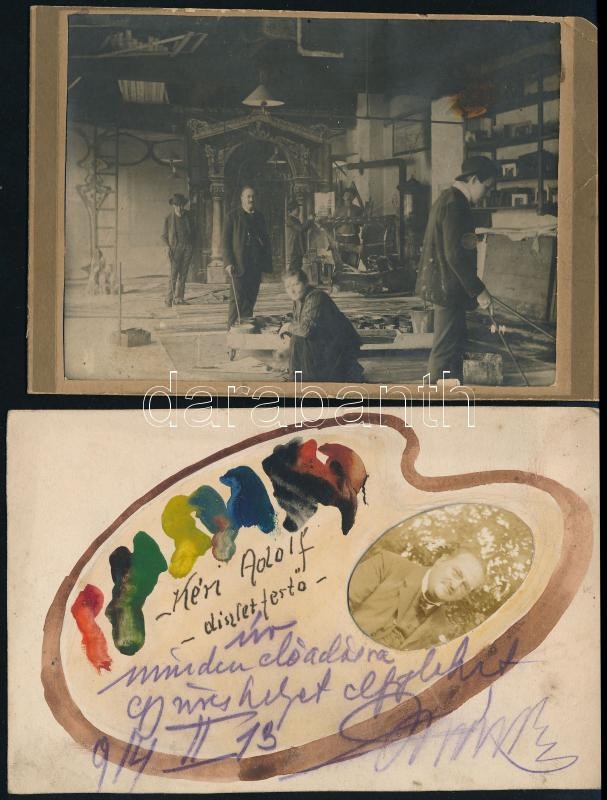 darabanth
- Kéri Adolf
- díszletfestő -
úr
minden előadásra
egy üres helyet elfoglalhat
914 II 13